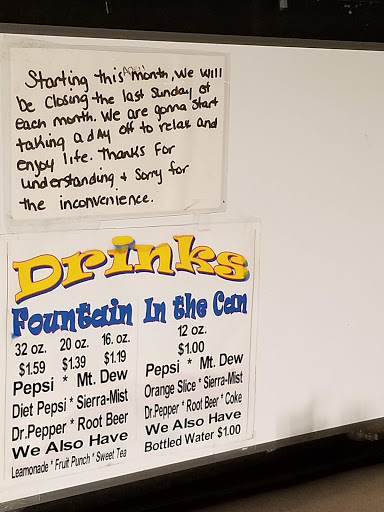 Starting this April month, we will
be closing the last Sunday of
each month. We are gonna start
taking a day off to relax and
enjoy life. Thanks For
understanding & Sorry for
the inconvenience.
Drinks
Fountain In the Can
32 oz. 20 oz. 16. oz.
$1.59 $1.39 $1.19
Pepsi * Mt. Dew
Diet Pepsi * Sierra-Mist
Dr.Pepper * Root Beer
We Also Have
Leamonade * Fruit Punch * Sweet Tea
12 oz.
$1.00
Pepsi * Mt. Dew
Orange Slice * Sierra-Mist
Dr.Pepper * Root Beer * Coke
We Also Have
Bottled Water $1.00